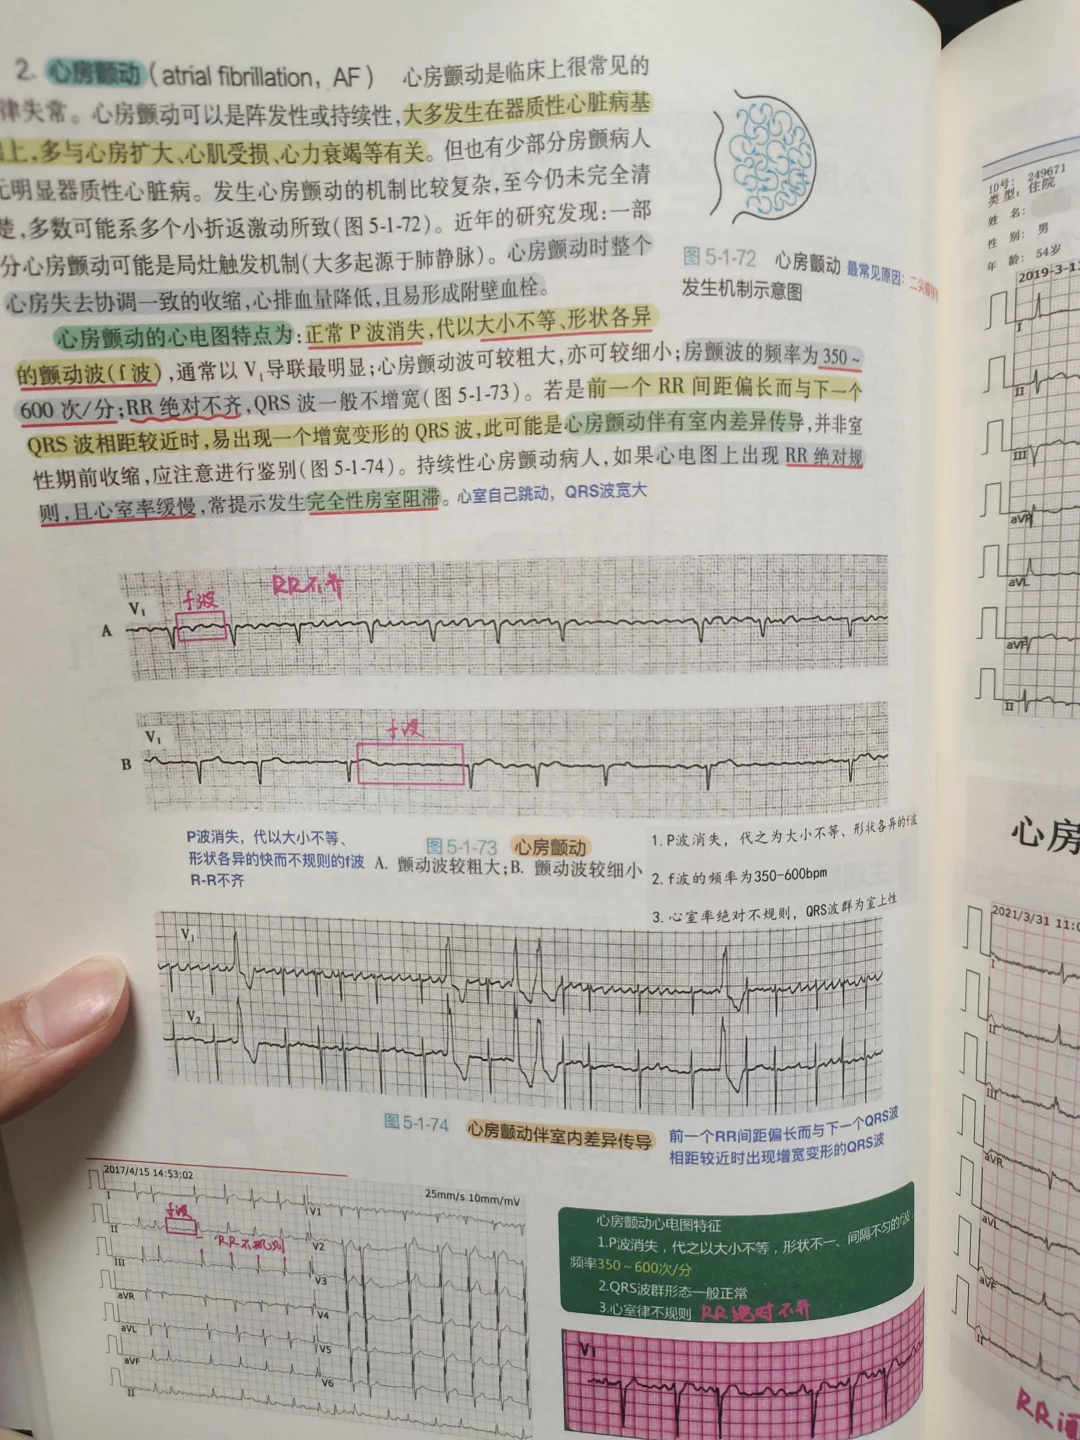 2. 心房颤动（atrial fibrillation，AF） 心房颤动是临床上很常见的
律失常。心房颤动可以是阵发性或持续性，大多发生在器质性心脏病基
上，多与心房扩大、心肌受损、心力衰竭等有关。但也有少部分房颤病人
无明显器质性心脏病。发生心房颤动的机制比较复杂，至今仍未完全清
楚，多数可能系多个小折返激动所致（图 5-1-72）。近年的研究发现：一部
分心房颤动可能是局灶触发机制（大多起源于肺静脉）。心房颤动时整个
心房失去协调一致的收缩，心排血量降低，且易形成附壁血栓。
图 5-1-72 心房颤动
发生机制示意图
最常见原因：二尖瓣
心房颤动的心电图特点为：正常 P 波消失，代以大小不等、形状各异
的颤动波（f 波），通常以 V₁导联最明显；心房颤动波可较粗大，亦可较细小；房颤波的频率为 350～
600 次/分；RR 绝对不齐，QRS 波一般不增宽（图 5-1-73）。若是前一个 RR 间距偏长而与下一个
QRS 波相距较近时，易出现一个增宽变形的 QRS 波，此可能是心房颤动伴有室内差异传导，并非室
性期前收缩，应注意进行鉴别（图 5-1-74）。持续性心房颤动病人，如果心电图上出现 RR 绝对规
则，且心室率缓慢，常提示发生完全性房室阻滞。心室自己跳动，QRS波宽大
V₁
f波
RR不齐
A
V₁
f波
B
P波消失，代以大小不等、
形状各异的快而不规则的f波
R-R不齐
图 5-1-73 心房颤动
A. 颤动波较粗大；B. 颤动波较细小
1. P波消失，代之为大小不等、形状各异的f波
2. f波的频率为350-600bpm
3. 心室率绝对不规则，QRS波群为室上性
V₁
V₂
图 5-1-74 心房颤动伴室内差异传导
前一个RR间距偏长而与下一个QRS波
相距较近时出现增宽变形的QRS波
2017/4/15 14:53:02
25mm/s 10mm/mV
I
V1
f波
II
V2
RR不规则
III
V3
aVR
V4
aVL
V5
aVF
V6
II
心房颤动心电图特征
1.P波消失，代之以大小不等，形状不一、间隔不匀的f波
频率350～600次/分
2.QRS波群形态一般正常
3.心室律不规则 RR绝对不齐
V1
ID号： 249671
类 型：住院
姓 名：
性 别：男
年 龄：54岁
2019-3-1
I
II
III
aVR
aVL
aVF
II
心房
2021/3/31 11:0
I
II
III
aVR
aVL
aVF
II
RR